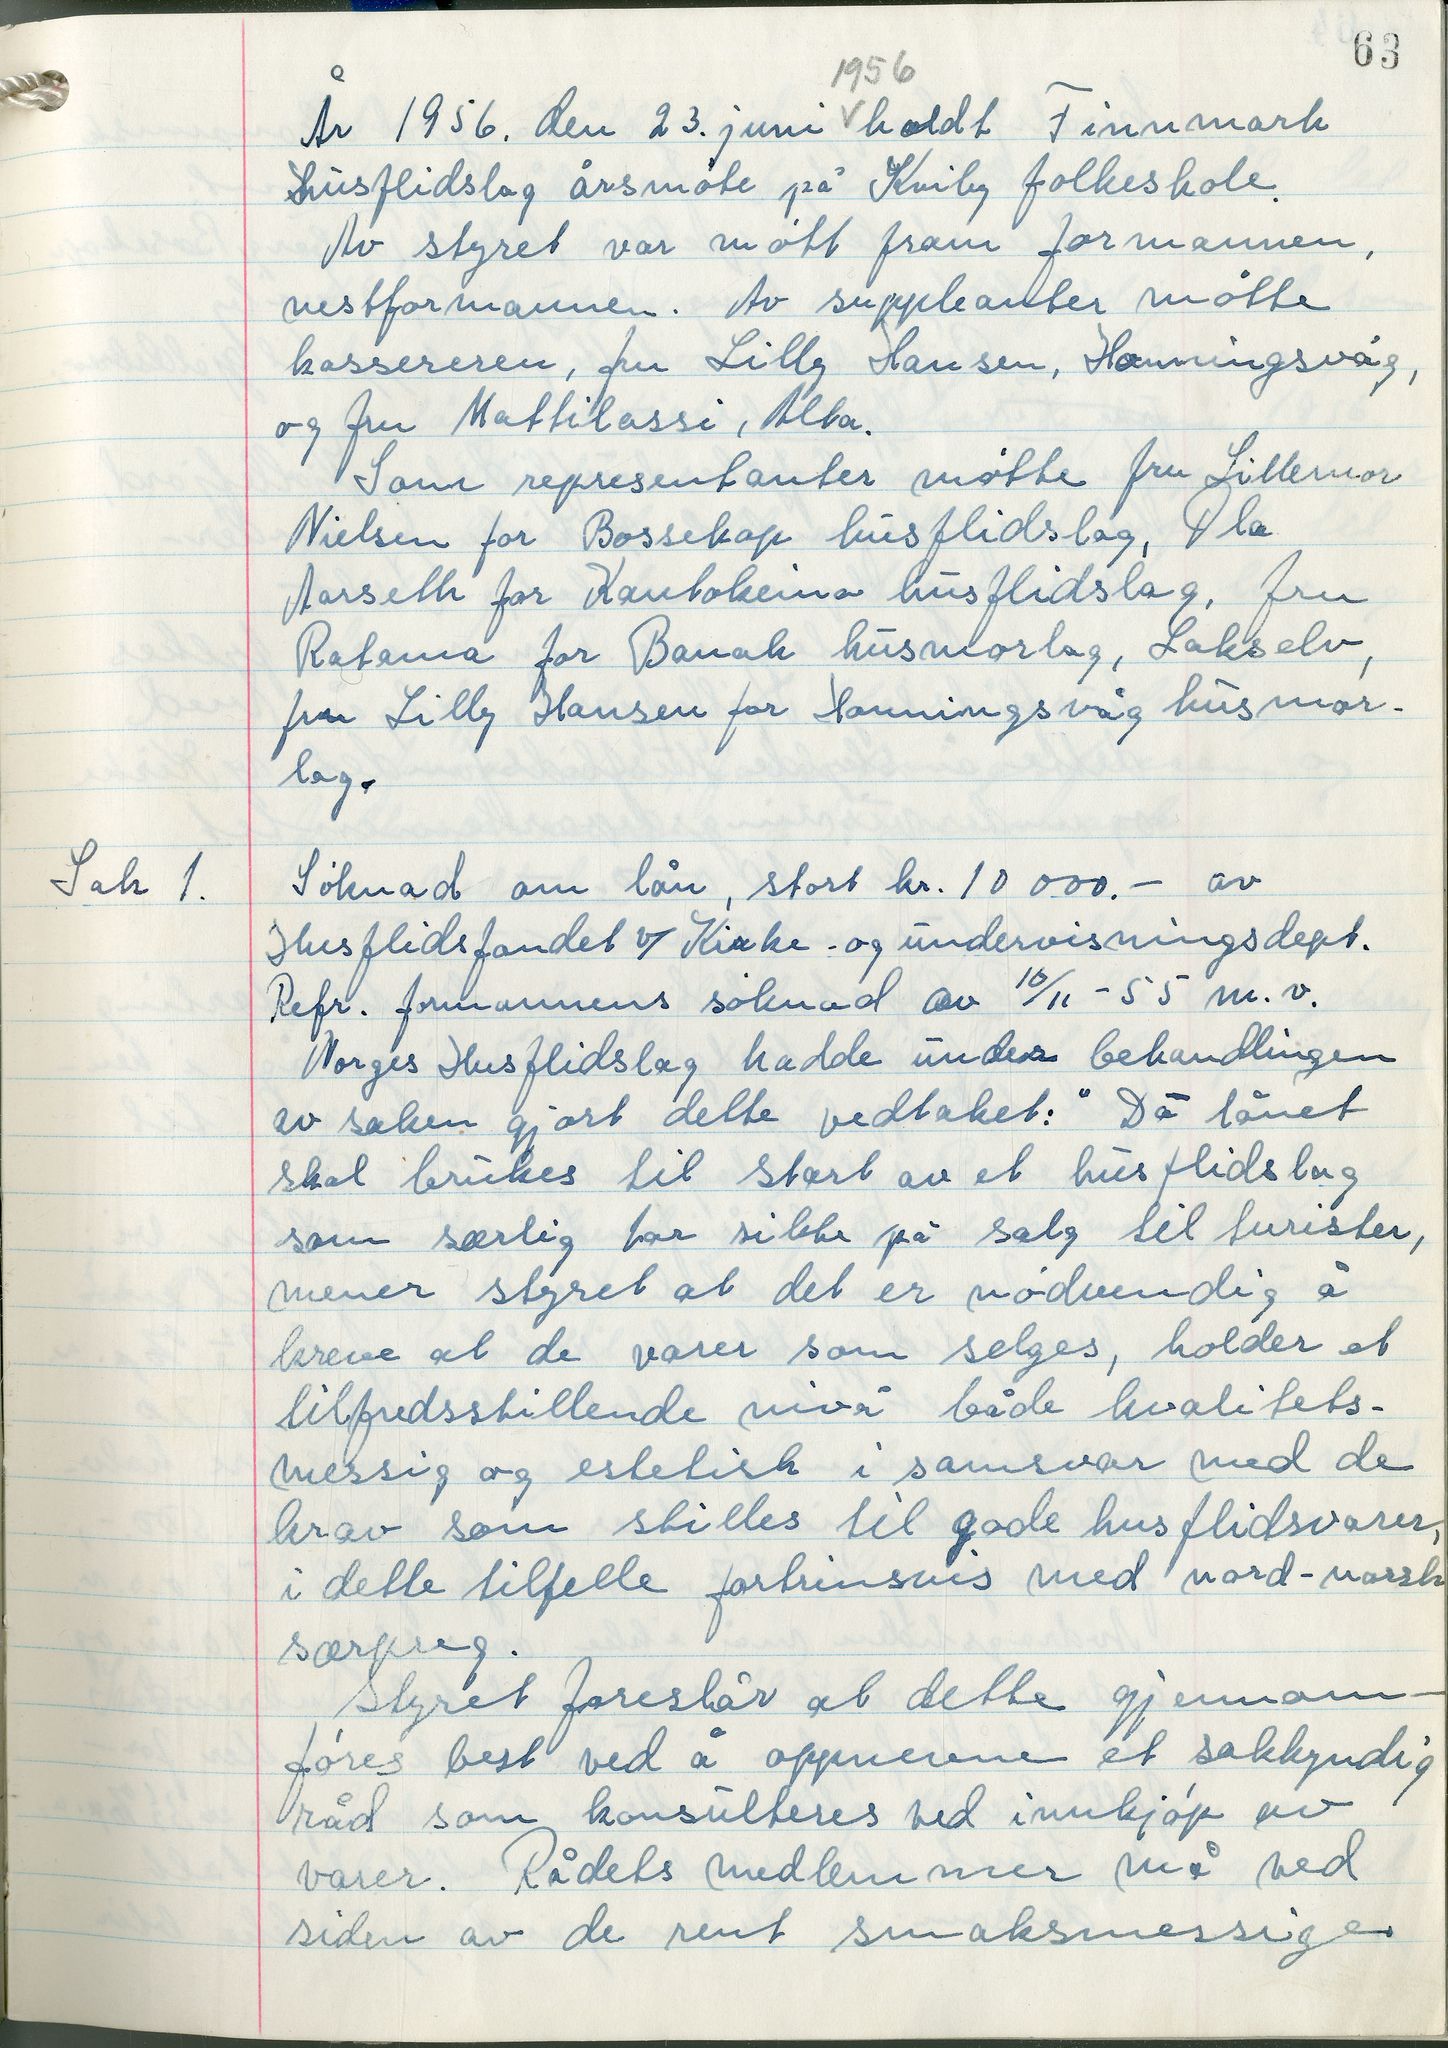 63
1956
År 1956. den 23. juni holdt Finnmark
Husflidslag årsmøte på Kviby folkeskole.
Av styret var møtt fram formannen,
nestformannen. Av suppleanter møtte
kassereren, fru Lilly Hansen, Honningsvåg,
og fru Mattilassi, Alta.
Som representanter møtte fru Lillemor
Nielsen for Bossekop husflidslag, Ola
Aarseth for Kautokeino husflidslag, fru
Ratama for Banak husmorlag, Lakselv,
fru Lilly Hansen for Honningsvåg husmor-
lag.
Sak 1. Søknad om lån, stort kr. 10 000.- av
Husflidsfondet v/ Kirke- og undervisningsdept.
Refr. formannens søknad av 10/11-55 m.v.
Norges Husflidslag hadde under behandlingen
av saken gjort dette vedtaket: "Då lånet
skal brukes til start av et husflidslag
som særlig tar sikte på salg til turister,
mener styret at det er nødvendig å
kreve at de varer som selges, holder et
tilfredsstillende nivå både kvalitets-
messig og estetisk i samsvar med de
krav som stilles til gode husflidsvarer,
i dette tilfelle fortrinsvis med nord-norsk
særpreg.
Styret foreslår at dette gjennom-
føres best ved å oppnevne et sakkyndig
råd som konsulteres ved innkjøp av
varer. Rådets medlemmer må ved
siden av de rent smaksmessige